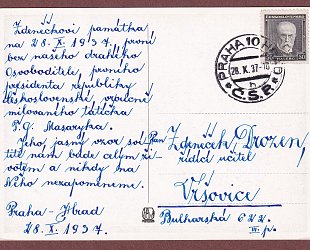 Zdenečkovi památka
na 28. X. 1937. první
bez našeho drahého
Osvoboditele, prvního
presidenta republiky
československé, vroucně
milovaného Tatíčka
T. G. Masaryka.
Jeho jasný vzor sví-
tež nám bude celým ži-
votem a nikdy na
Něho nezapomeneme.
Praha - Hrad
28. X. 1937.
ČESKOSLOVENSKO
50
PRAHA 10
28. X. 37
Č.S.R.
Pan
Zdeněk Drozen,
řídící učitel
Vršovice
Bulharská 622.
III. p.